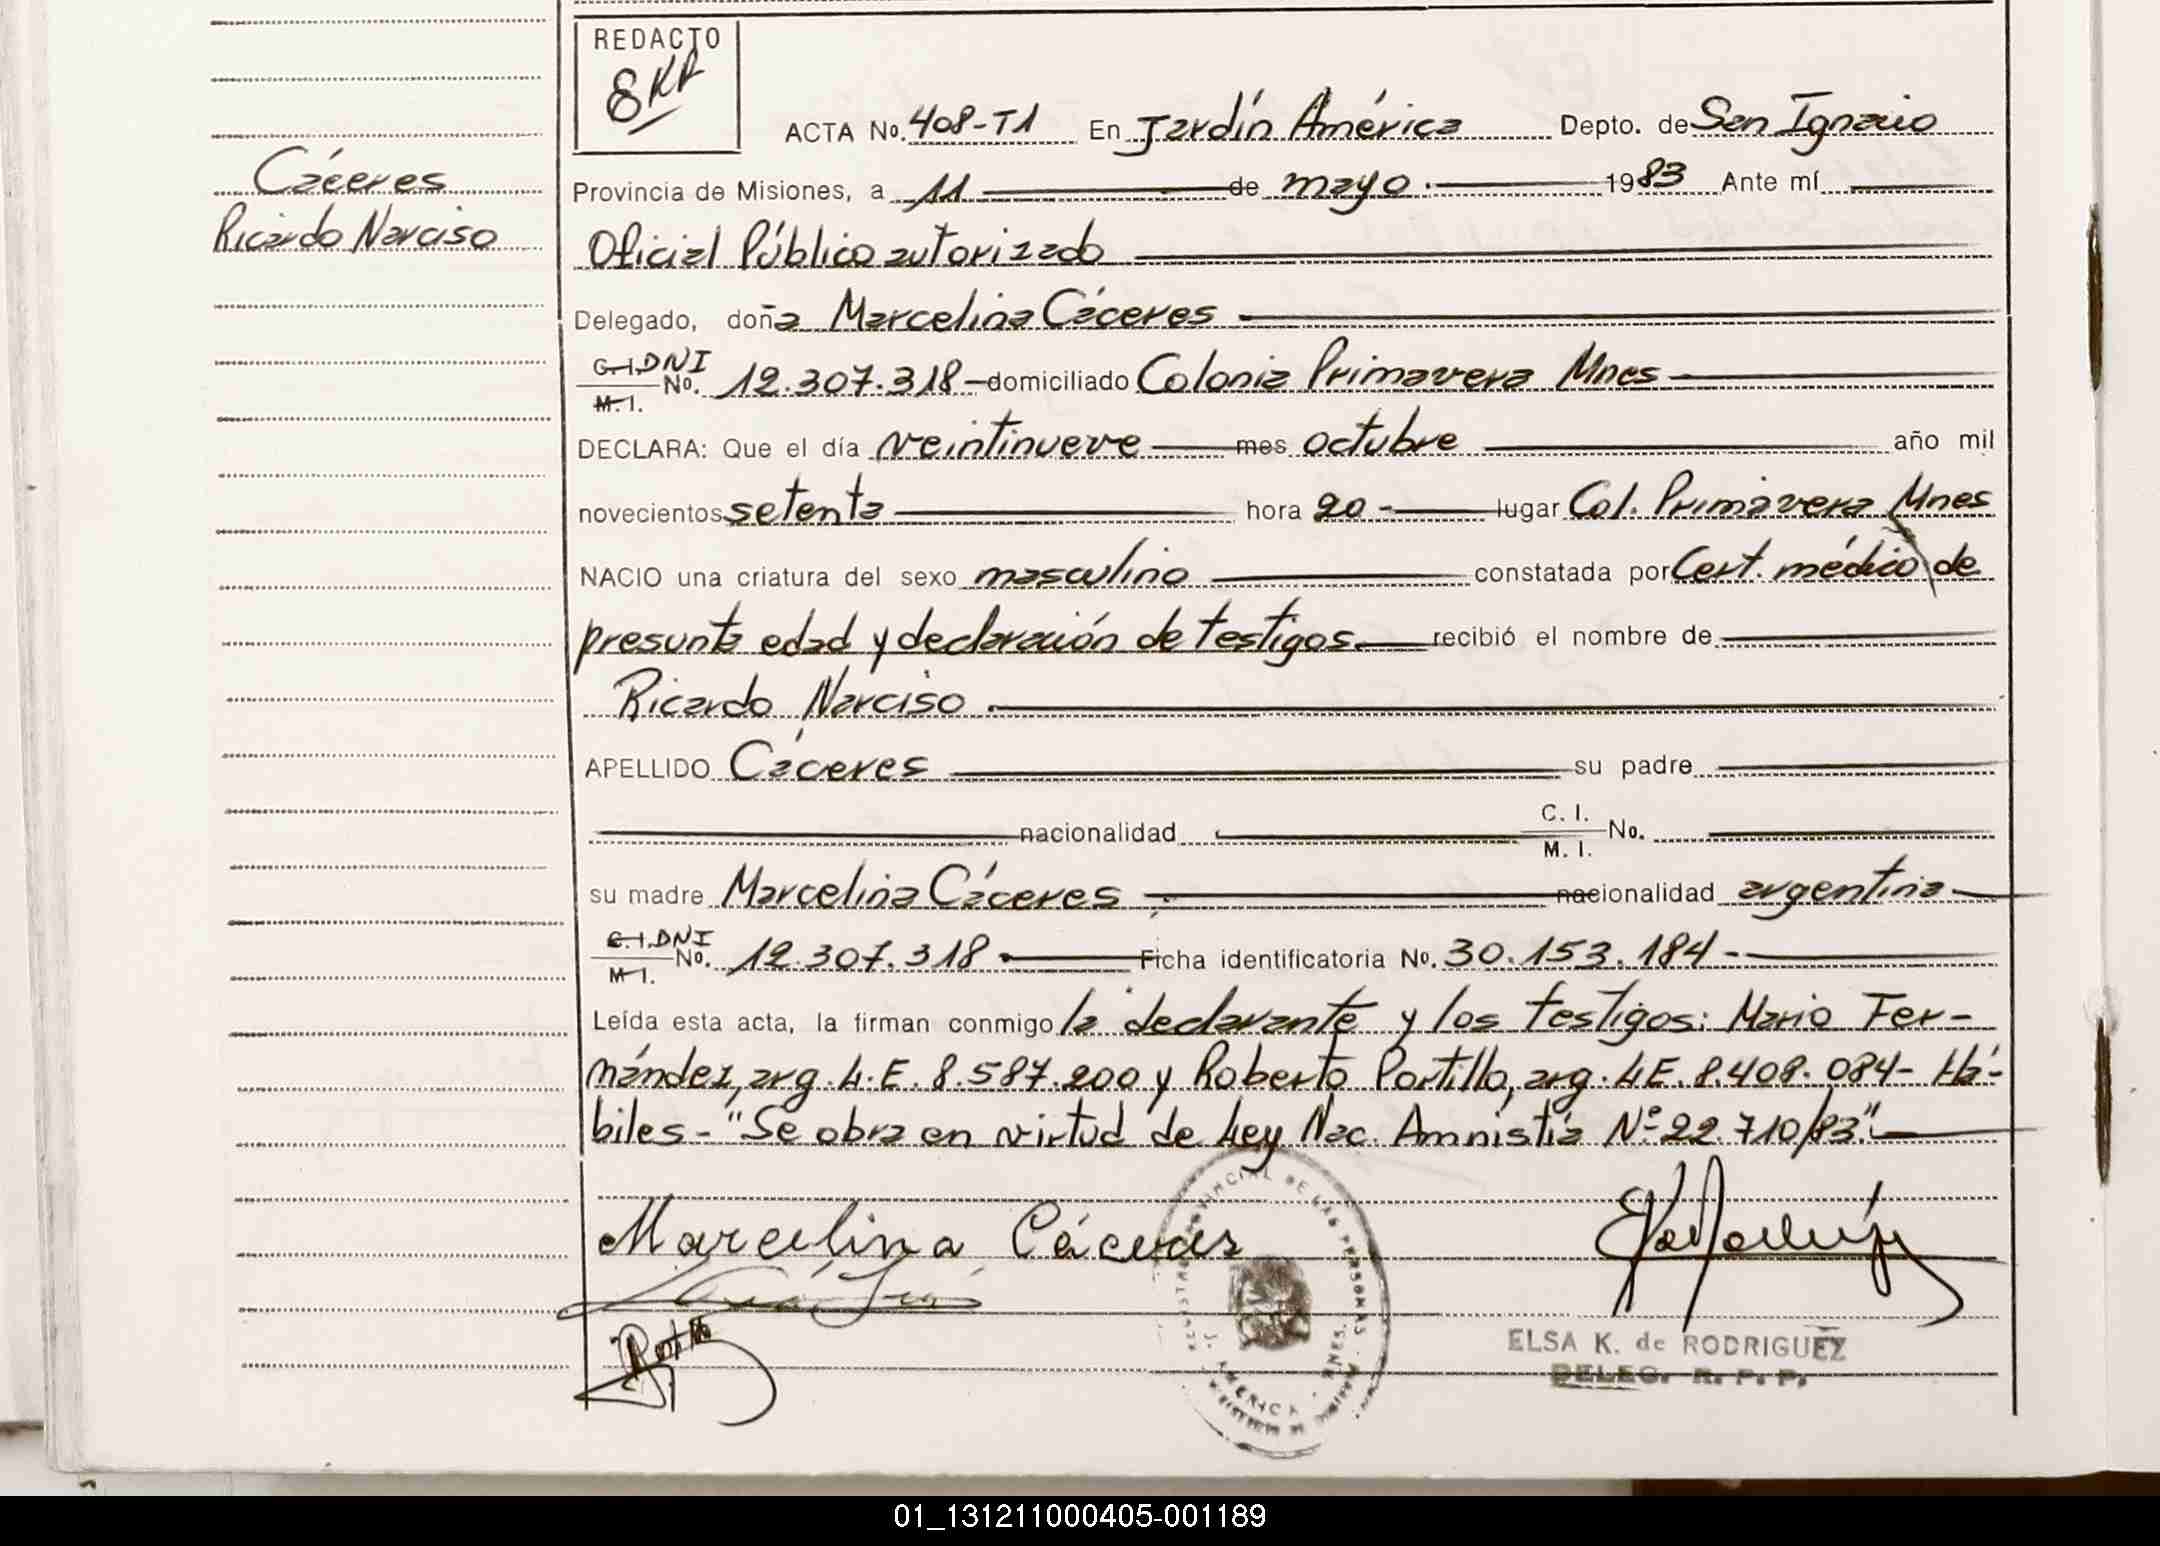 REDACTO
EKR
ACTA No. 408-T1 En Jardín América Depto. de San Ignacio
Cáceres
Provincia de Misiones, a 11 de mayo 1983 Ante mí
Ricardo Narciso
Oficial Público autorizado
Delegado, doña Marcelina Cáceres
C.I. DNI
No. 12.307.318 domiciliado Colonia Primavera Mnes
M. I.
DECLARA: Que el día veintinueve mes octubre año mil
novecientos setenta hora 20 - lugar Col. Primavera Mnes
NACIO una criatura del sexo masculino constatada por Cert. médico de
presunta edad y declaración de testigos. recibió el nombre de
Ricardo Narciso.
APELLIDO Cáceres su padre
nacionalidad C. I. No.
M. I.
su madre Marcelina Cáceres nacionalidad argentina
C.I. DNI
No. 12.307.318 Ficha identificatoria No. 30.153.184-
M. I.
Leída esta acta, la firman conmigo la declarante y los testigos: Mario Fer-
nández, arg. L.E. 8.587.200 y Roberto Portillo, arg. L.E. 8.408.084- Há-
biles- "Se obra en virtud de Ley Nac. Amnistía Nº 22.710/83".
Marcelina Cáceres
ELSA K. de RODRIGUEZ
DELEG. R. P. P.
01_131211000405-001189